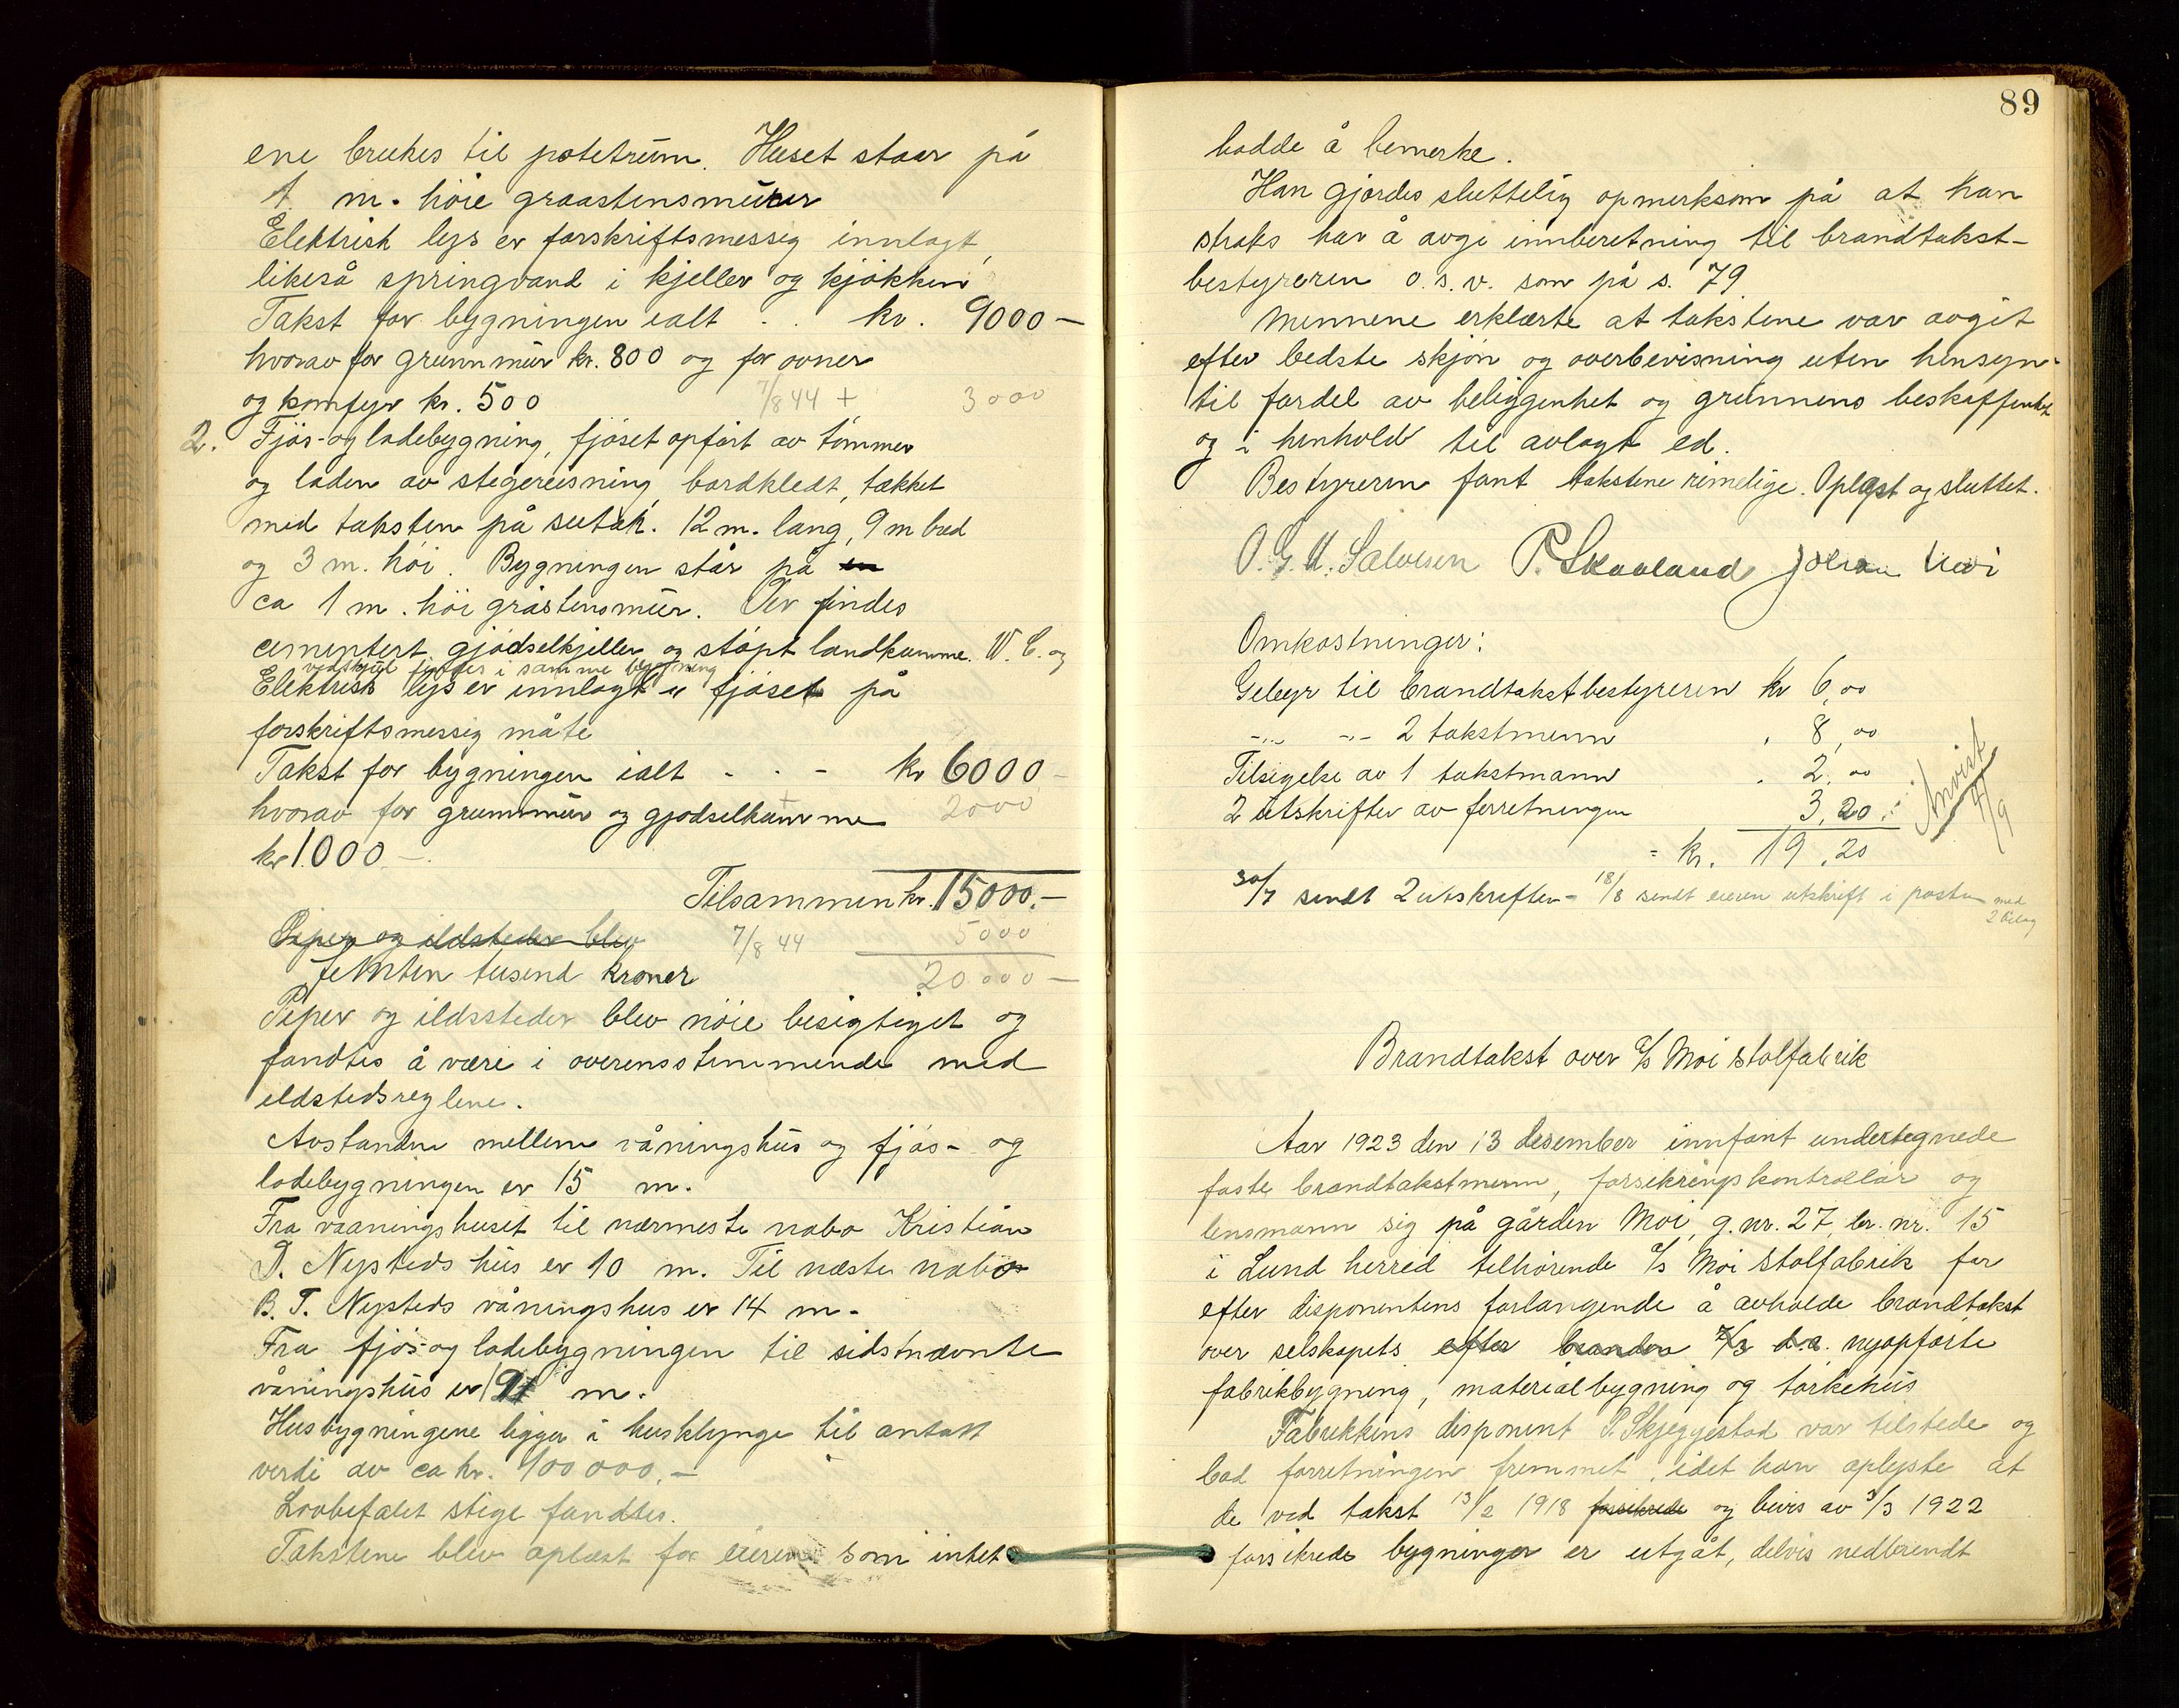 ene brukes til potetrum. Huset staar på
1 m. høie graastensmurer
Elektrisk lys er forskriftsmessig innlagt,
likeså springvand i kjeller og kjøkken
Takst for bygningen ialt . . kr. 9000 —
hvorav for grunnmur kr. 800 og for ovner
og komfyr kr. 500 7/8 44 + 3000
2. Fjøs- og ladebygning, fjøset opført av tømmer
og laden av stegereisning, bordkledt, tækket
med taksten på sutak. 12 m. lang, 9 m bred
og 3 m. høi. Bygningen står på en
ca 1 m. høi gråstensmur. Der findes
cementert gjødselkjeller og støpt landkumme. W. C. og
vedskjul findes i samme bygning
Elektrisk lys er innlagt i fjøset på
forskriftsmessig måte
Takst for bygningen ialt - . - kr 6000 -
hvorav for grunnmur og gjødselkumme + 2000
kr 1000 —.
Tilsammen kr. 15000.-
Piper og ildsteder blev 7/8 44 5000
femten tusend kroner 20000 —
Piper og ildssteder blev nøie besigtiget og
fandtes å være i overensstemmende med
ildstedsreglene.
Avstanden mellem våningshus og fjøs- og
ladebygningen er 15 m.
Fra vaaningshuset til nærmeste nabo Kristian
T. Nysteds hus er 10 m. Til næste nabo
B. T. Nysteds våningshus er 14 m.
Fra fjøs- og ladebygningen til sidstnævnte
våningshus er m.
Husbygningene ligger i husklynge til antatt
verdi av ca kr. 100000.-
Lovbefalet stige fandtes.
Takstene blev oplæst for eieren som intet
89
hadde å bemerke.
Han gjordes sluttelig opmerksom på at han
straks har å avgi innberetning til brandtakst-
bestyreren o.s.v. som på s. 79
Mennene erklærte at takstene var avgit
efter bedste skjøn og overbevisning uten hensyn
til fordel av beliggenhet og grunnens beskaffenhet
og i henhold til avlagt ed.
Bestyreren fant takstene rimelige. Oplæst og sluttet.
O. G. U. Salvesen P. Skaaland Johan Moi
Omkostninger:
Gebyr til brandtakstbestyreren kr 6,00
-..- -..- 2 takstmenn . 8,00
Tilsigelse av 1 takstmann . 2,00
2 utskrifter av forretningen 3,20
Anvist 4/9
= kr. 19,20
30/7 sendt 2 utskrifter - 18/8 sendt eieren utskrift i posten med
2 bilag
Brandtakst over a/s Moi Stolfabrik
Aar 1923 den 13 desember innfant undertegnede
faste brandtakstmenn, forsikringskontrollør og
lensmann sig på gården Moi, g.nr. 27, br. nr. 15
i Lund herred tilhørende a/s Moi Stolfabrik for
efter disponentens forlangende å avholde brandtakst
over selskapets efter branden 7/3 d.a. nyopførte
fabrikbygning, materialbygning og tørkehus
Fabrikkens disponent P. Skjeggestad var tilstede og
bad forretningen fremmet, idet han oplyste at
de ved takst 13/2 1918 forsikrede og bevis av 3/3 1922
forsikrede bygninger er utgåt, delvis nedbrendt